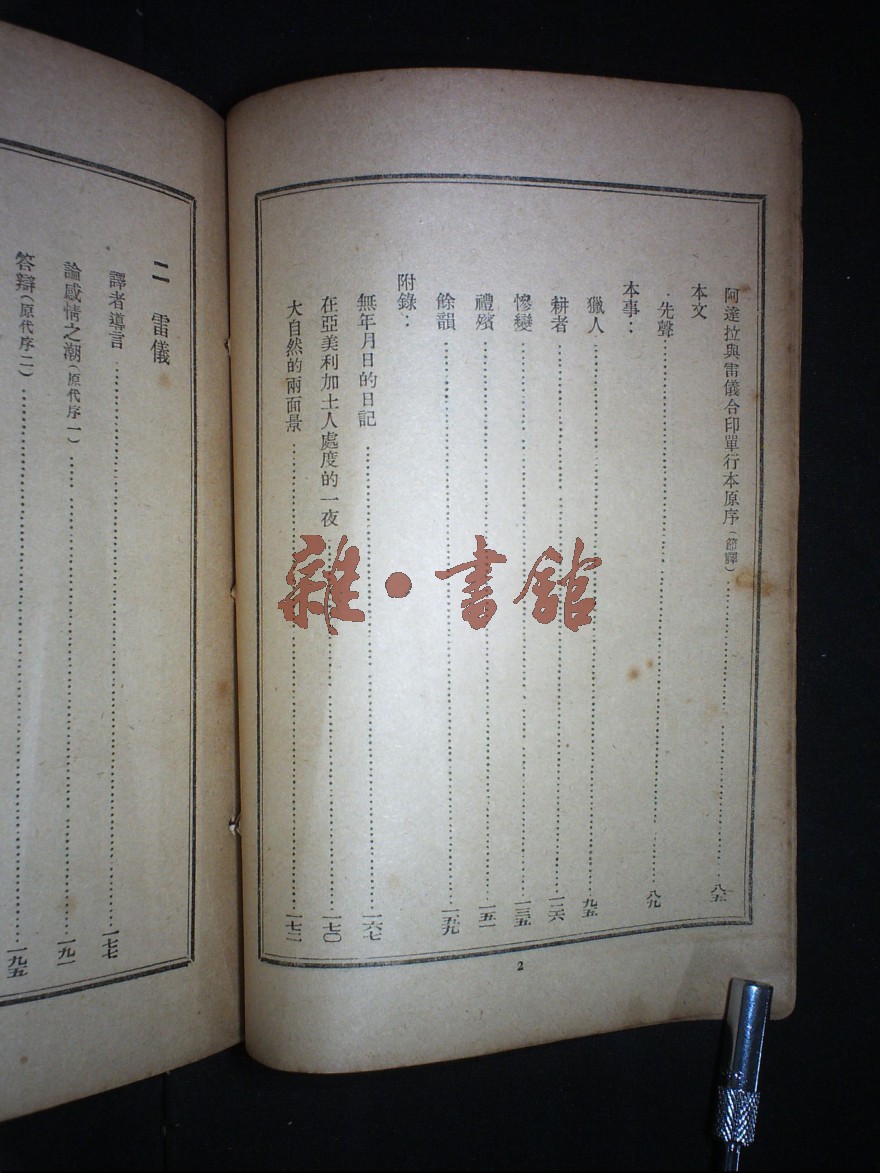 阿達拉與雷儀合印單行本原序(節譯)……八五
本文
先聲……八九
本事：
獵人……九五
耕者……一二六
慘變……一三五
禮殯……一五一
餘韻……一五九
附錄：
無年月日的日記……一六七
在亞美利加土人處度的一夜……一七〇
大自然的兩面景……一七二
2
二 雷儀
譯者導言……一七七
論感情之潮(原代序一)……一九一
答辯(原代序二)……一九五
雜·書館